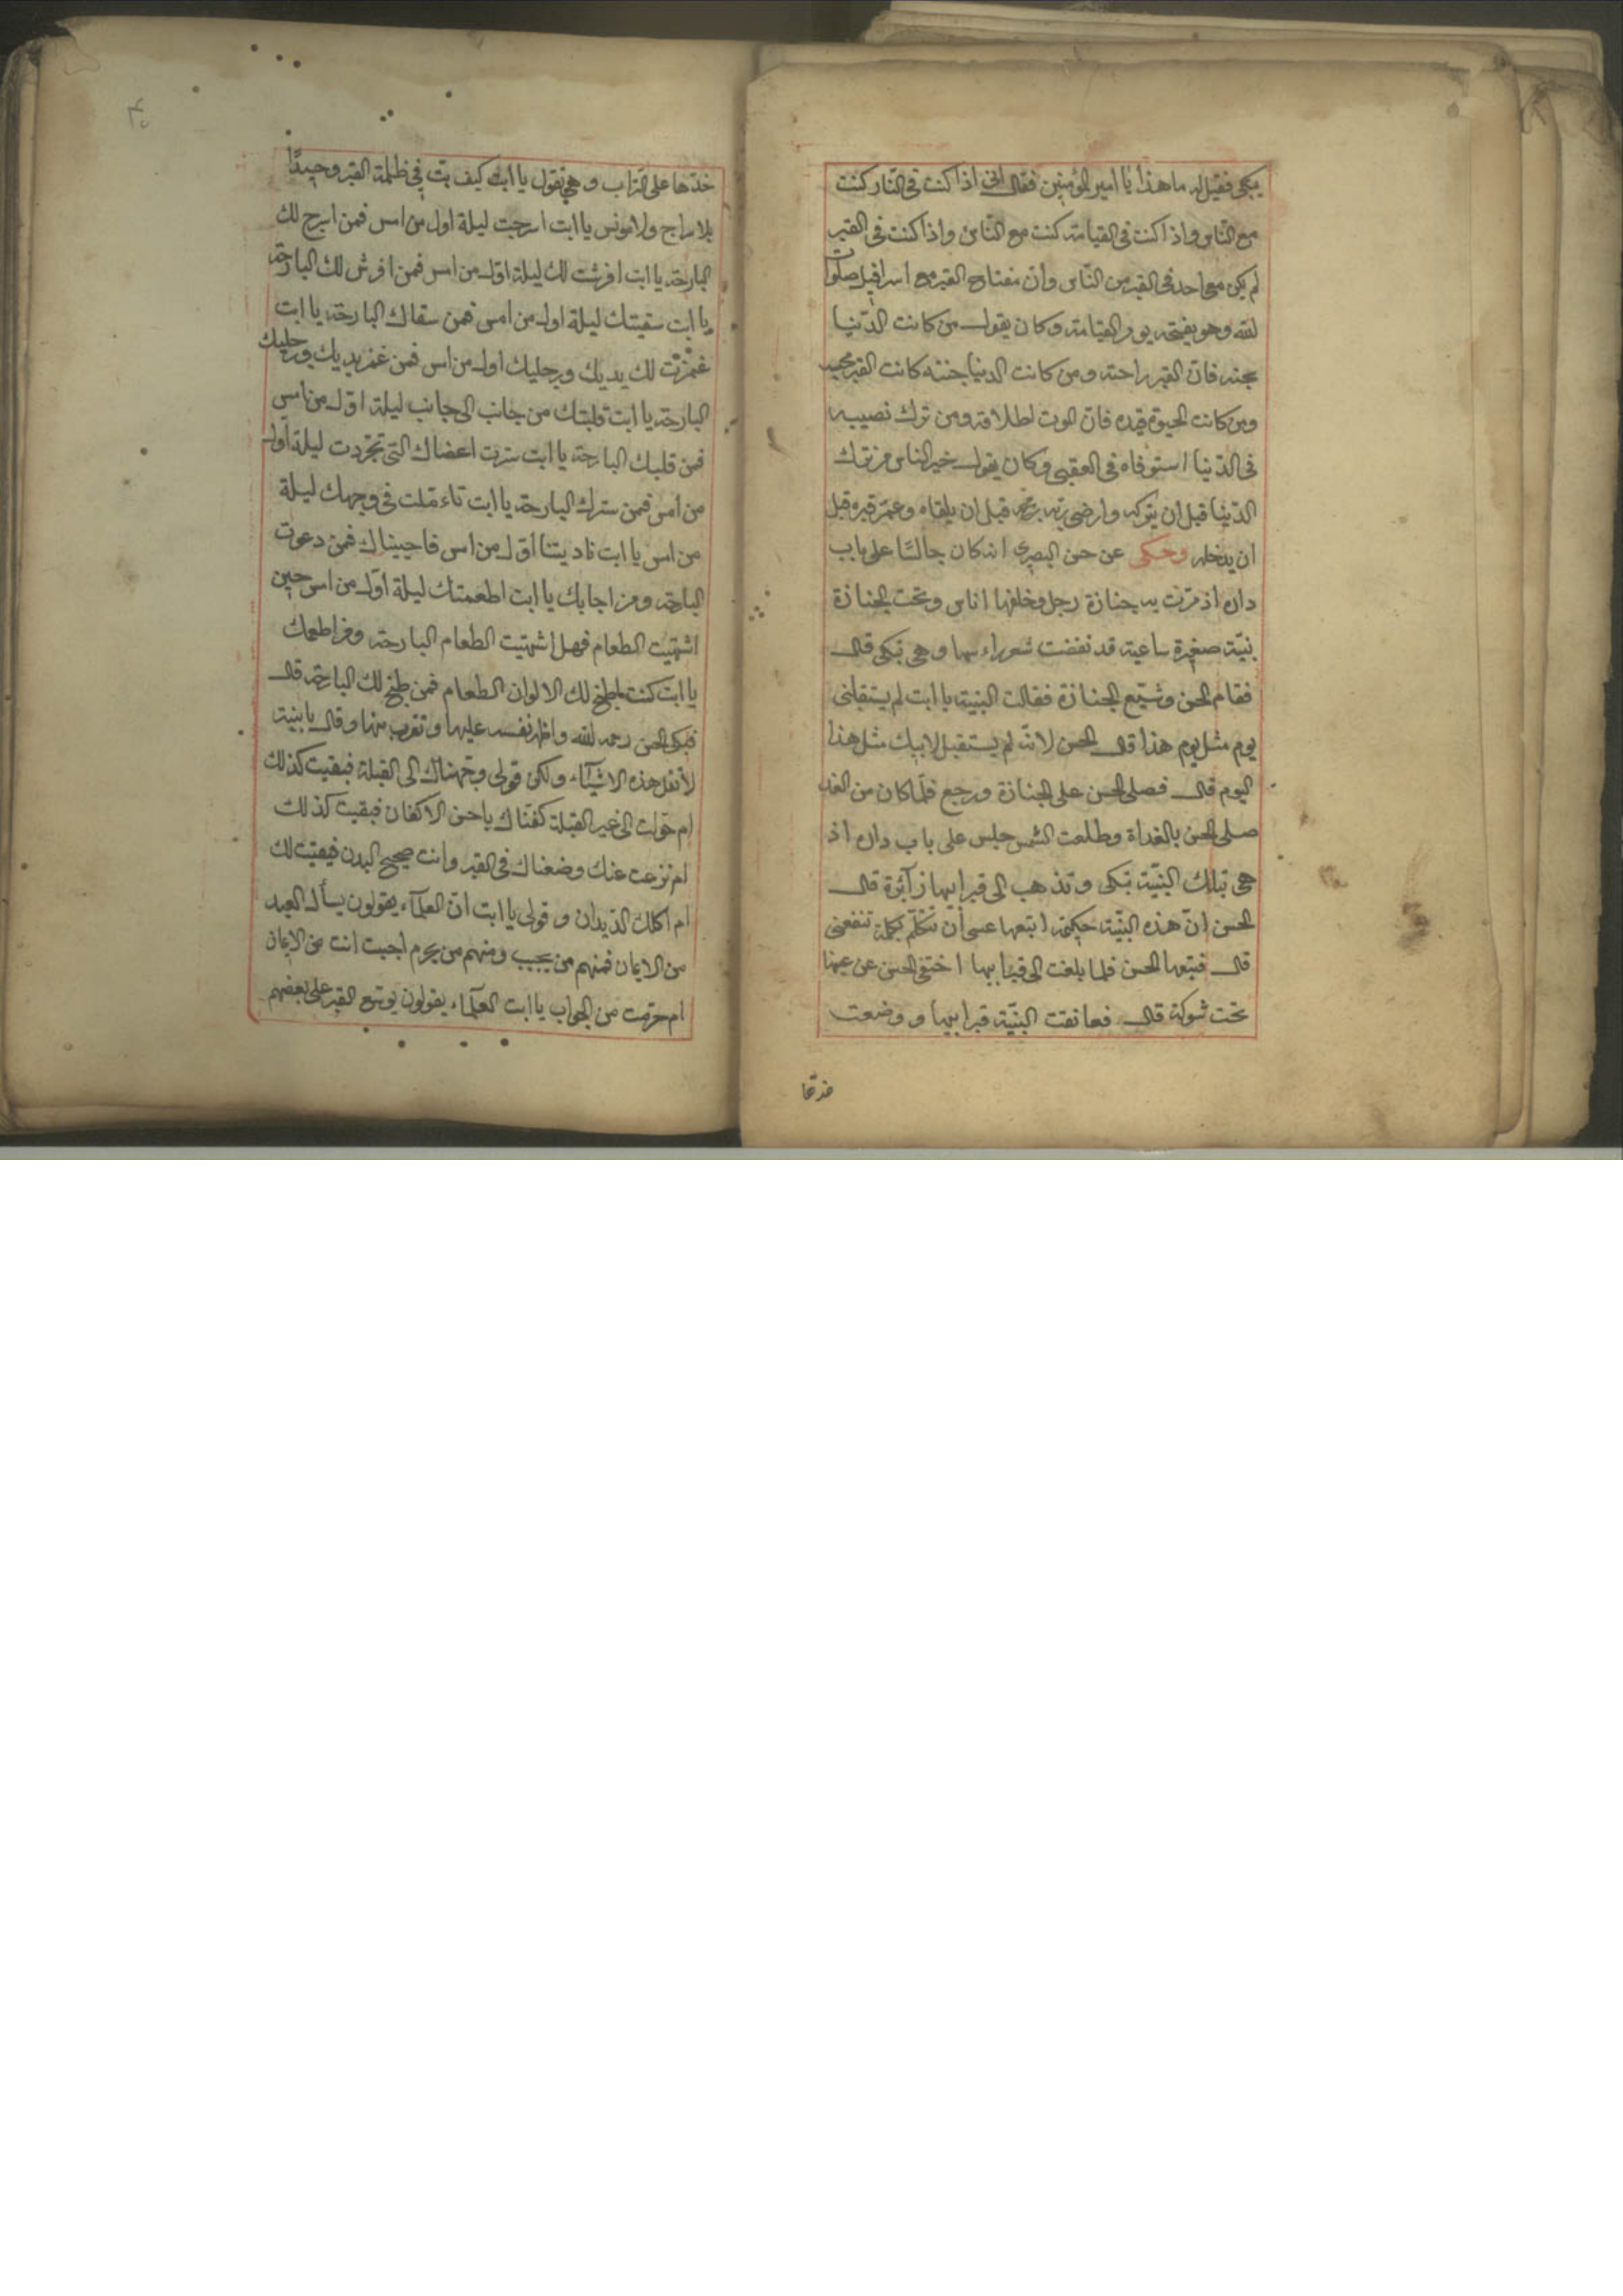 يبكى فقيل له ما هذا يا امير المؤمنين فقال انى اذا كنت فى النّار كنت
مع النّاس واذا كنت فى القيامة كنت مع النّاس واذا كنت فى القبر
لم يكن معى احد فى القبر من النّاس وان مفتاح القبر مع اسرافيل صلوات
الله وهو يفتحه يوم القيامة وكان يقول من كانت الدّنيا
سجنه فانّ القبر راحته ومن كانت الدنيا جنته كانت القبر سجنه
ومن كانت الحيوة قيده فانّ الموت اطلاقه ومن ترك نصيبه
فى الدّنيا استوفاه فى العقبى وكان يقول خير الناس من ترك
الدّنيا قبل ان يتركه وارضى ربّه قبل ان يلقاه وعمّر قبره قبل
ان يدخله وحكى عن حسن البصرى انه كان جالسًا على باب
داره اذ مرّت به جنازة رجل وخلفها اناس وتحت الجنازة
بنيّة صغيرة ساعية قد نفضت شعر راسها وهى تبكى قال
فقام الحسن وشيّع الجنازة فقالت البنية يا ابت لم يستقبلنى
يوم مثل يوم هذا قال الحسن لانّه لم يستقبل لابيك مثل هذا
اليوم قال فصلى الحسن على الجنازة ورجع فلمّا كان من الغد
صلى الحسن بالغداة وطلعت الشمس جلس على باب داره اذ
هى بتلك البنيّة تبكى وتذهب الى قبر ابيها زآئرة قال
الحسن انّ هذه البنيّة حكيمة اتبعها عسى أن تتكلّم بكلمة تنفعنى
قال فتبعها الحسن فلما بلغت الى قبر ابيها اختفى الحسن عن عينها
تحت شوكة قال فعانقت البنيّة قبر ابيها ووضعت
خدّها
خدّها على التراب وهى تقول يا ابت كيف بت فى ظلمة القبر وحيدًا
بلا سراج ولا مونس يا ابت اسرجت ليلة اول من امس فمن اسرج لك
البارحة يا ابت افرشت لك ليلة اوّل من امس فمن افرش لك البارحة
يا ابت سقيتك ليلة اول من امس فمن سقاك البارحة يا ابت
غمّزت لك يديك ورجليك اول من امس فمن غمز يديك ورجليك
البارحة يا ابت قلبتك من جانب الى جانب ليلة اوّل من امس
فمن قلبك البارحة يا ابت سترت اعضاك التى تجرّدت ليلة اول
من امس فمن سترك البارحة يا ابت تاءمّلت فى وجهك ليلة
من امس يا ابت ناديتنا اوّل من امس فاجبناك فمن دعوت
البارحة ومن اجابك يا ابت اطعمتك ليلة اوّل من امس حين
اشتهيت الطعام فهل اشتهيت الطعام البارحة ومن اطعمك
يا ابت كنت اطبخ لك الالوان الطعام فمن طبخ لك البارحة قال
فبكى الحسن رحمه الله واظهر نفسه عليها وتقرب منها وقال يا بنية
لا تقل هذه الاشيآء ولكن قولى وجّهناك الى القبلة فبقيت كذلك
ام حوّلت الى غير القبلة كفنّاك باحسن الاكفان فبقيت كذلك
ام نزعت عنك وضعناك فى القبر وانت صحيح البدن فبقيت لك
ام اكلك الدّيدان وقولى يا ابت انّ العلمآء يقولون يسأل العبد
من الايمان فمنهم من يجيب ومنهم من يحرم اجبت انت من الايمان
ام حرّمت من الجواب يا ابت العلمآء يقولون يوسّع القبر على بعضهم